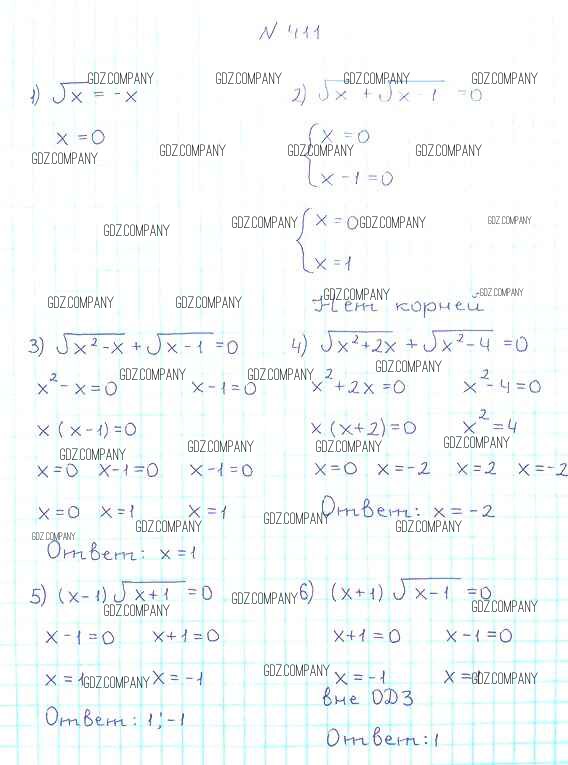 N 411
GDZ.COMPANY GDZ.COMPANY GDZ.COMPANY GDZ.COMPANY
1) √x = -x 2) √x + √x-1 = 0
x = 0 x = 0
GDZ.COMPANY GDZ.COMPANY GDZ.COMPANY GDZ.COMPANY
x - 1 = 0
GDZ.COMPANY GDZ.COMPANY x = 0 GDZ.COMPANY GDZ.COMPANY
x = 1
GDZ.COMPANY GDZ.COMPANY GDZ.COMPANY GDZ.COMPANY
Нет корней
3) √x²-x + √x-1 = 0 4) √x²+2x + √x²-4 = 0
GDZ.COMPANY GDZ.COMPANY GDZ.COMPANY
x² - x = 0 x - 1 = 0 x² + 2x = 0 x² - 4 = 0
x (x-1) = 0 x (x+2) = 0 x² = 4
GDZ.COMPANY GDZ.COMPANY GDZ.COMPANY GDZ.COMPANY
x = 0 x-1 = 0 x-1 = 0 x = 0 x = -2 x = 2 x = -2
x = 0 x = 1 x = 1 Ответ: x = -2
GDZ.COMPANY GDZ.COMPANY GDZ.COMPANY GDZ.COMPANY
Ответ: x = 1
5) (x-1) √x+1 = 0 6) (x+1) √x-1 = 0
GDZ.COMPANY GDZ.COMPANY GDZ.COMPANY
x - 1 = 0 x+1 = 0 x+1 = 0 x-1 = 0
x = 1 GDZ.COMPANY x = -1 GDZ.COMPANY x = -1 x = GDZ.COMPANY
вне ОДЗ
Ответ: 1; -1
Ответ: 1